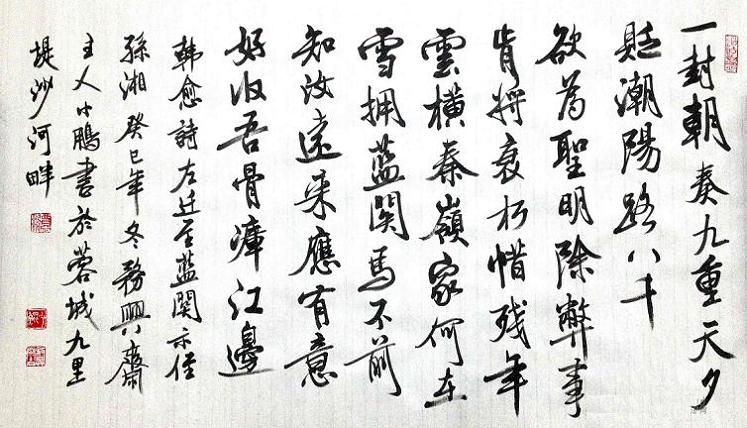 一封朝奏九重天夕
貶潮陽路八千
欲為聖明除弊事
肯将衰朽惜残年
雲横秦嶺家何在
雪拥藍関馬不前
知汝遠来應有意
好收吾骨瘴江邊
韩愈詩左迁至藍関示侄
孫湘癸巳年冬務興齋
主人小鵬書於蓉城九里
堤沙河畔